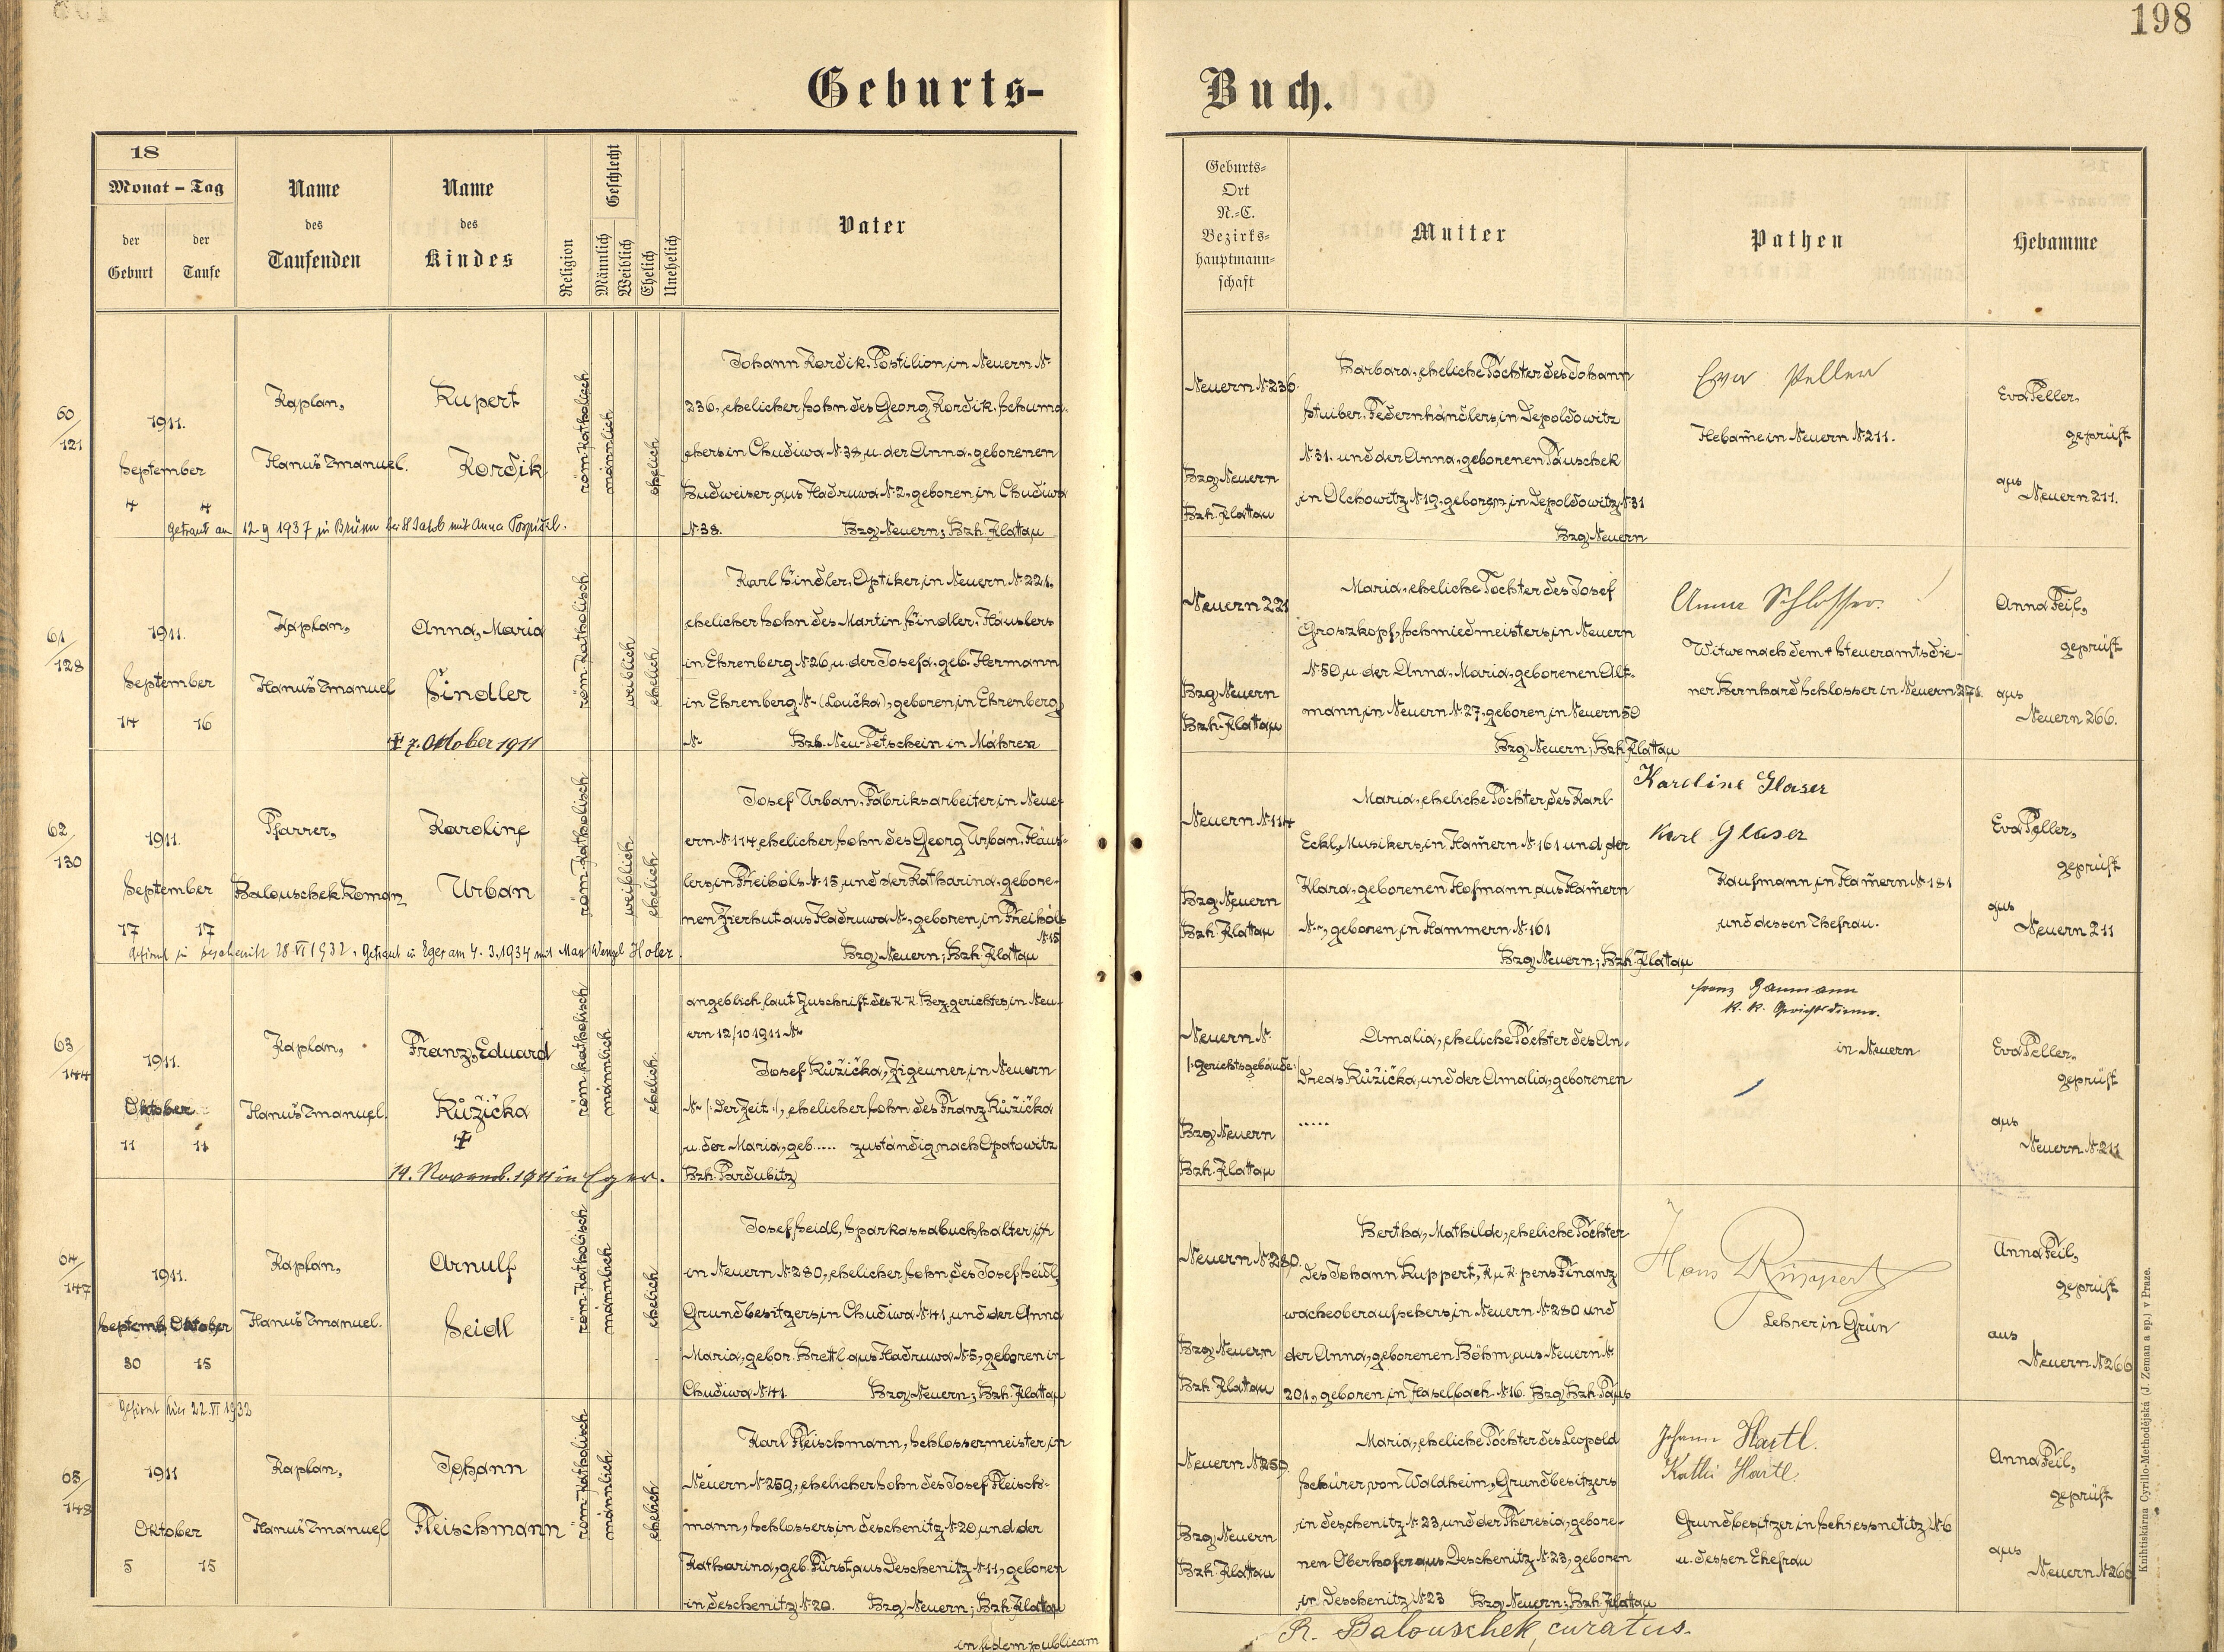 198
Geburts-
Buch.
18
Monat - Tag
der Geburt
der Taufe
Name des Taufenden
Name des Kindes
Religion
Geschlecht
Männlich
Weiblich
Ehelich
Unehelich
Vater
Geburts-
Ort
N.-C.
Bezirks-
hauptmann-
schaft
Mutter
Pathen
Hebamme
60/121
1911.
September
4 4
Kaplan,
Hanuš Emanuel.
Rupert
Kordik
röm-katholisch
männlich
ehelich
Johann Kordik, Postilion, in Neuern N.
236, ehelicher Sohn des Georg Kordik, Schuma-
chers in Chudiwa N. 38, u. der Anna, geborenen
Budweiser aus Hadruwa N. 2, geboren, in Chudiwa
N. 38. Bzg. Neuern; Bzh. Klattau
getraut am 12.9 1937 in Brünn bei St Jakob mit Anna Pospíšil.
Neuern N. 236.
Bzg. Neuern
Bzh. Klattau
Barbara, eheliche Tochter des Johann
Stuiber, Federnhändlers, in Depoldowitz
N. 31. und der Anna, geborenen Pauschek
in Olchowitz N. 19, geboren, in Depoldowitz N. 31
Bzg. Neuern
Eva Peller
Hebam̄e in Neuern N. 211.
Eva Peller,
geprüft
aus
Neuern 211.
61/128
1911.
September
14 16
Kaplan,
Hanuš Emanuel
Anna, Maria
Šindler
‡ 7. Oktober 1911
röm-katholisch
weiblich
ehelich
Karl Šindler, Optiker, in Neuern N. 221,
ehelicher Sohn des Martin Šindler, Häuslers
in Ehrenberg N. 26, u. der Josefa, geb. Hermann
in Ehrenberg N. – (Loučka), geboren, in Ehrenberg
N. – Bzh. Neu-Tetschein in Mähren
Neuern 221
Bzg. Neuern
Bzh. Klattau
Maria, eheliche Tochter des Josef
Groszkopf, Schmiedmeisters, in Neuern
N. 50, u. der Anna, Maria, geborenen Alt-
mann, in Neuern N. 27, geboren, in Neuern 50
Bzg. Neuern; Bzh. Klattau
Anna Schlosser.
Witwe nach dem † Steueramtsdie-
ner Bernhard Schlosser in Neuern 271.
Anna Feil,
geprüft
aus
Neuern 266.
62/130
1911.
September
17 17
Pfarrer,
Balouschek Roman
Karoline
Urban
röm-katholisch
weiblich
ehelich
Josef Urban, Fabriksarbeiter, in Neue-
ern N. 114, ehelicher Sohn des Georg Urban, Häus-
lers, in Freihöls N. 15, und der Katharina, gebore-
nen Zierhut aus Hadruwa N. –, geboren, in Freihöls
N. 15
Bzg. Neuern; Bzh. Klattau
Gefirmt in Deschenitz 28.VI 1932. Getraut in Eger am 4. 3. 1934 mit Max Wenzel Hofer.
Neuern N. 114
Bzg. Neuern
Bzh. Klattau
Maria, eheliche Tochter, des Karl
Eckl, Musikers, in Ham̄ern N. 161 und der
Klara, geborenen Hofmann, aus Ham̄ern
N. –, geboren, in Hammern N. 161
Bzg. Neuern; Bzh. Klattau
Karoline Glaser
Karl Glaser
Kaufmann, in Ham̄ern N. 181
und dessen Ehefrau.
Eva Peller,
geprüft
aus
Neuern 211
63/144
1911.
Oktober
11 11
Kaplan,
Hanuš Emanuel.
Franz, Eduard
Růžička
‡
14. Novemb. 1911 in Eger.
röm katholisch
männlich
ehelich
angeblich, laut Zuschrift des K. K. Bez. gerichtes, in Neu-
ern 12/10 1911 N. –
Josef Růžička, Zigeuner, in Neuern
N. – (: derzeit :), ehelicher Sohn des Franz Růžička
u. der Maria, geb. ..... zuständig, nach Opatowitz
Bzh. Pardubitz
Neuern N.
/: Gerichtsgebäude :/
Bzg. Neuern
Bzh. Klattau
Amalia, eheliche Tochter des An-
dreas Růžička, und der Amalia, geborenen
.....
Franz Baumann
k. k. Gerichtsdiener.
in Neuern
Eva Peller,
geprüft
aus
Neuern N. 211
64/147
1911.
Septemb. Oktober
30 15
Kaplan,
Hanuš Emanuel.
Arnulf
Seidl
röm-katholisch
männlich
ehelich
Josef Seidl, Sparkassabuchhalter, in
in Neuern N. 280, ehelicher Sohn des Josef Seidl,
Grundbesitzers, in Chudiwa N. 41, und der Anna
Maria, gebor. Brettl aus Hadruwa N. 5, geboren in
Chudiwa N. 41. Bzg. Neuern; Bzh. Klattau
Neuern N. 280.
Bzg. Neuern
Bzh. Klattau
Bertha, Mathilde, eheliche Tochter
des Johann Ruppert, K. u. K. pens. Finanz
wacheoberaufsehers, in Neuern N. 280 und
der Anna, geborenen Böhm, aus Neuern N.
201, geboren, in Haselbach N. 16. Bzg. Bzh. Taus
Hans Ruppert
Lehrer in Grün
Anna Feil,
geprüft
aus
Neuern N. 266
Gefirmt hier 22.VI 1932
65/148
1911
Oktober
5 15
Kaplan,
Hanuš Emanuel
Johann
Fleischmann
röm-katholisch
männlich
ehelich
Karl Fleischmann, Schlossermeister, in
Neuern N. 259, ehelicher Sohn des Josef Fleisch-
mann, Schlossers, in Deschenitz N. 20, und der
Katharina, geb. Fürst, aus Deschenitz N. 11, geboren
in Deschenitz N. 20. Bzg. Neuern; Bzh. Klattau
Neuern N. 259.
Bzg. Neuern
Bzh. Klattau
Maria, eheliche Tochter des Leopold
Schürer, von Waldheim, Grundbesitzers
in Deschenitz N. 23, und der Theresia, gebore-
nen Oberhofer aus Deschenitz N. 23, geboren
in Deschenitz N. 23 Bzg. Neuern; Bzh. Klattau
Johann Hartl.
Kathi Hartl.
Grundbesitzer in Schiessnetitz N. 6
u. dessen Ehefrau
Anna Feil,
geprüft
aus
Neuern N. 266
in fidem publicam
R. Balouschek, curatus.
Knihtiskárna Cyrillo-Methodějská (J. Zeman a sp.) v Praze.